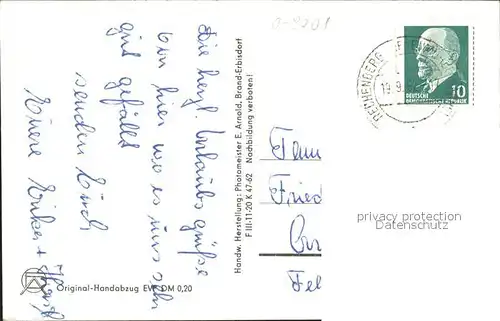 0-9201
Die herzl. Urlaubsgrüße
von hier wo es uns sehr
gut gefällt
senden Euch
Eure Erika + Horst
Handw. Herstellung: Photomeister E. Arnold, Brand-Erbisdorf
F III-11-20 K 47-62 Nachbildung verboten!
Original-Handabzug EVP DM 0,20
RECHENBERG
19.9.
10
DEUTSCHE
DEMOKRATISCHE REPUBLIK
Fam
Fried
privacy protection
Datenschutz